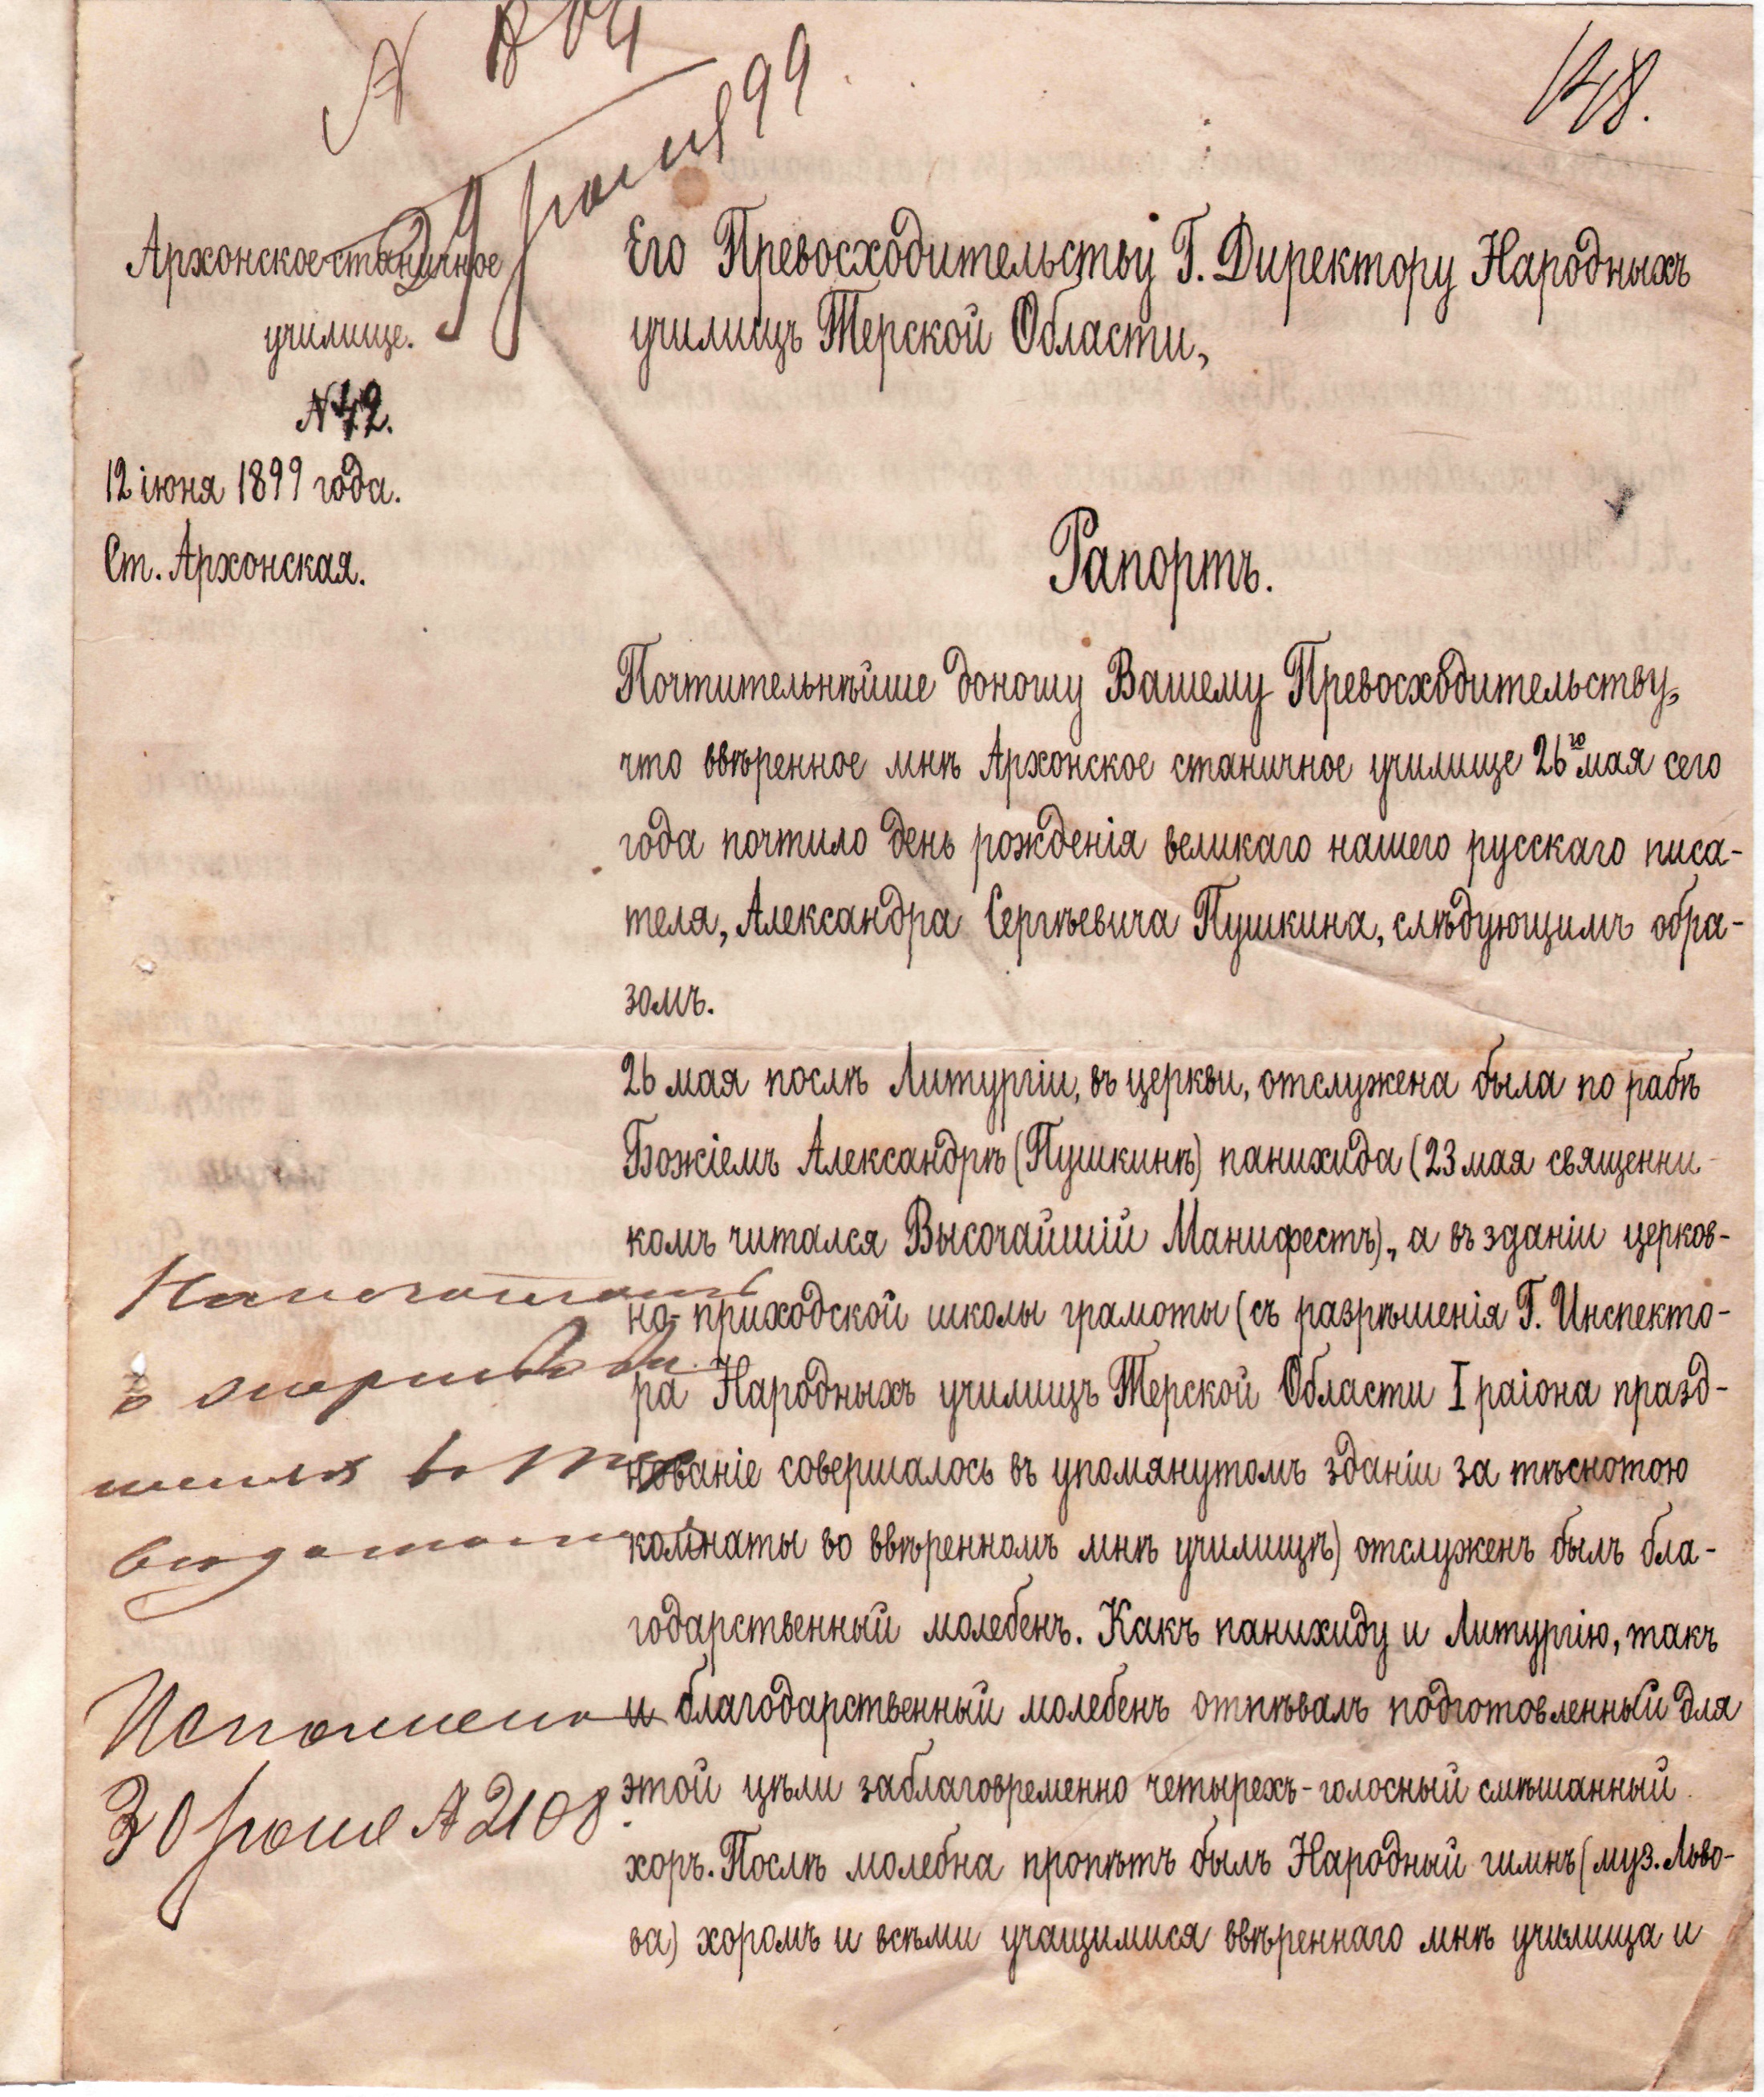 29 іюня 99
148.
Архонское станичное
училище.
№ 42.
12 іюня 1899 года.
Ст. Архонская.
Его Превосходительству Г. Директору Народныхъ
училищъ Терской Области,
Рапортъ.
Почтительнѣйше доношу Вашему Превосходительству,
что ввѣренное мнѣ Архонское станичное училище 26го мая сего
года почтило день рожденія великаго нашего русскаго писа-
теля, Александра Сергѣевича Пушкина, слѣдующимъ обра-
зомъ.
26 мая послѣ Литургіи, въ церкви, отслужена была по рабѣ
Божіемъ Александрѣ (Пушкинѣ) панихида (23 мая священни-
комъ читался Высочайшій Манифестъ), а въ зданіи церков-
но-приходской школы грамоты (съ разрѣшенія Г. Инспекто-
ра Народныхъ училищъ Терской Области I раіона празд-
нованіе совершалось въ упомянутомъ зданіи за тѣснотою
комнаты во ввѣренномъ мнѣ училищѣ) отслуженъ былъ бла-
годарственный молебенъ. Какъ панихиду и Литургію, такъ
и благодарственный молебенъ отпѣвалъ подготовленный для
этой цѣли заблаговременно четырехъ-голосный смѣшанный
хоръ. Послѣ молебна пропѣтъ былъ Народный гимнъ (муз. Льво-
ва) хоромъ и всѣми учащимися ввѣреннаго мнѣ училища и
Напечатать
Исполнено
30 іюня № 2108.